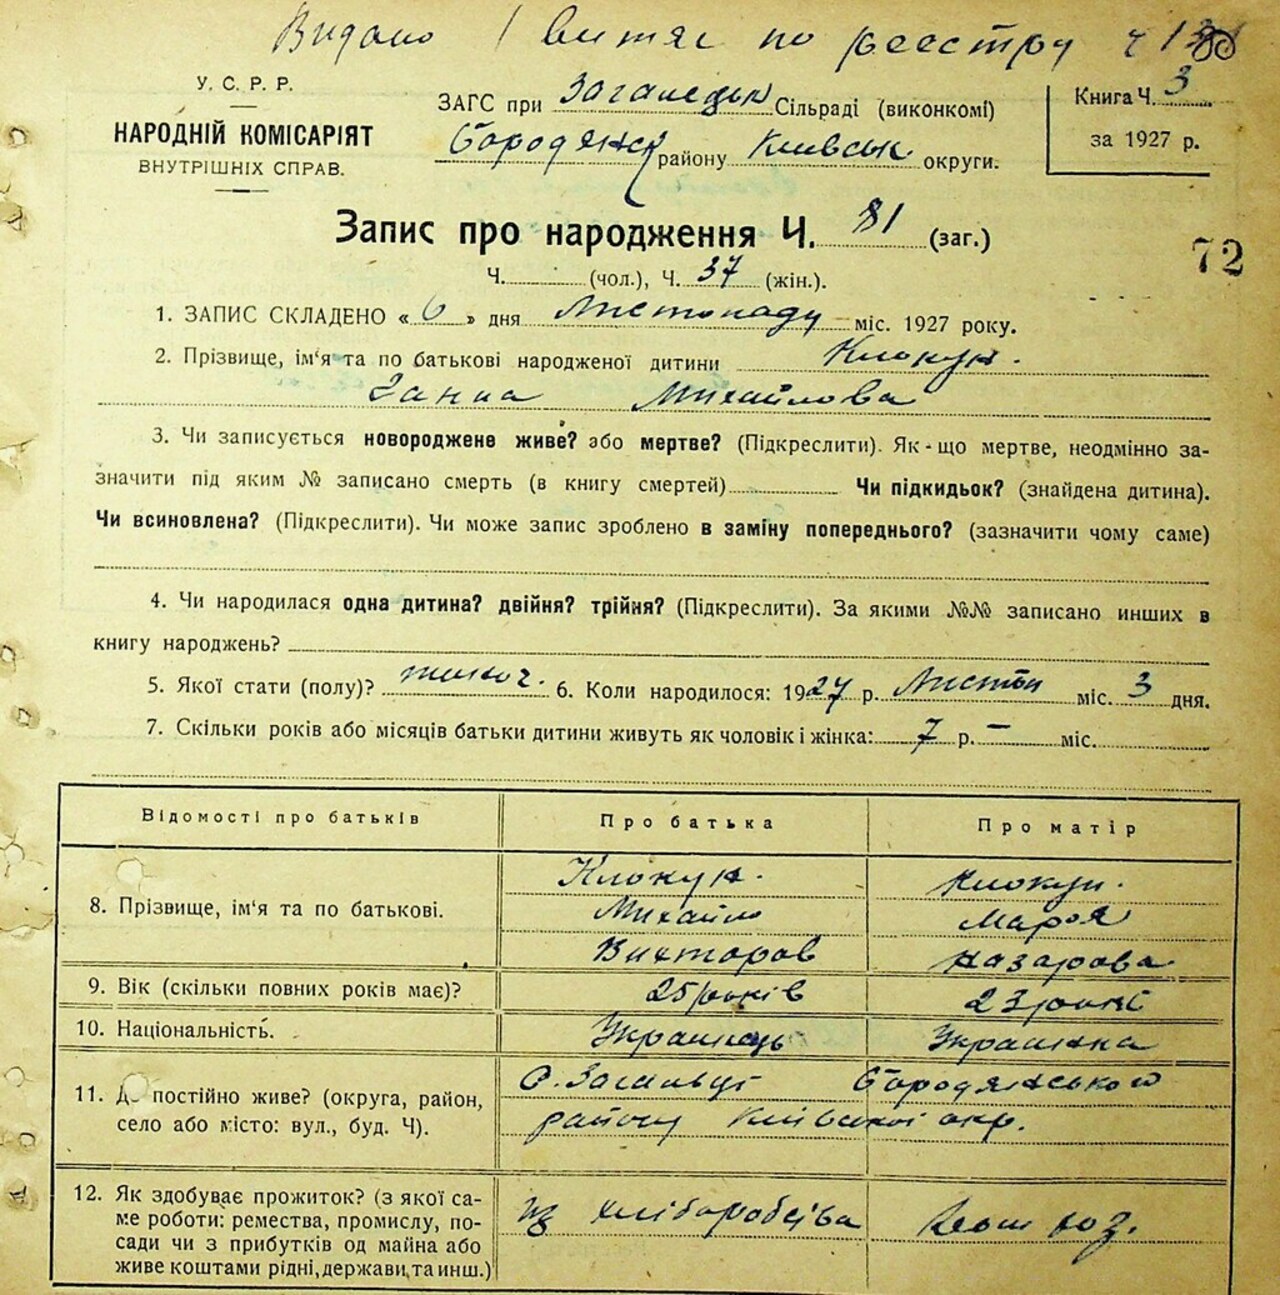 Видано 1 витяг по реєстру ч 13
У. С. Р. Р.
НАРОДНІЙ КОМІСАРІЯТ
ВНУТРІШНІХ СПРАВ.
ЗАГС при Загалецьк Сільраді (виконкомі)
Бородянск району Київськ округи.
Книга Ч. 3
за 1927 р.
Запис про народження Ч. 81 (заг.)
72
Ч. (чол.), Ч. 37 (жін.).
1. ЗАПИС СКЛАДЕНО « 6 » дня Листопаду міс. 1927 року.
2. Прізвище, ім‘я та по батькові народженої дитини Клокун.
Ганна Михайлова
3. Чи записується новороджене живе? або мертве? (Підкреслити). Як-що мертве, неодмінно за-
значити під яким № записано смерть (в книгу смертей) Чи підкидьок? (знайдена дитина).
Чи всиновлена? (Підкреслити). Чи може запис зроблено в заміну попереднього? (зазначити чому саме)
4. Чи народилася одна дитина? двійня? трійня? (Підкреслити). За якими №№ записано инших в
книгу народжень?
5. Якої стати (полу)? жіноч. 6. Коли народилося: 1927 р. Листоп міс. 3 дня.
7. Скільки років або місяців батьки дитини живуть як чоловік і жінка: 7 р. – міс.
Відомості про батьків Про батька Про матір
8. Прізвище, ім‘я та по батькові.
Клокун. Клокун.
Михайло Марія
Викторов Назарова
9. Вік (скільки повних років має)? 25 років 23 роки
10. Національність. Українець Українка
11. Де постійно живе? (округа, район,
село або місто: вул., буд. Ч).
с. Загальці Бородянського
району Київської окр.
12. Як здобуває прожиток? (з якої са-
ме роботи: ремества, промислу, по-
сади чи з прибутків од майна або
живе коштами рідні, держави, та инш.)
из хліборобства Дом хоз.